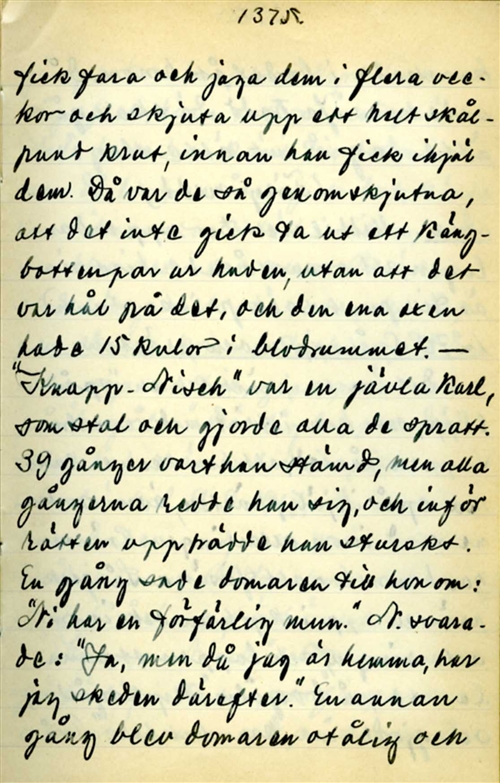 13752.
fick fara och jaga dem i flera vec-
kor och skjuta upp ett helt skål-
pund krut, innan han fick ihjäl
dem. Då var de så genomskjutna,
att det inte gick ta ut ett käng-
bottenpar ur huden, utan att det
var hål på det, och den ena oxen
hade 15 kulor i blodrummet. —
"Knapp-Nisch" var en jävla karl,
som stal och gjorde alla de spratt.
39 gånger vart han stämd, men alla
gångerna redde han sig, och inför
rätten uppträdde han sturskt.
En gång sade domaren till honom:
"Ni har en förfärlig mun." N. svara-
de: "Ja, men då jag är hemma, har
jag skeden därefter." En annan
gång blev domaren otålig och